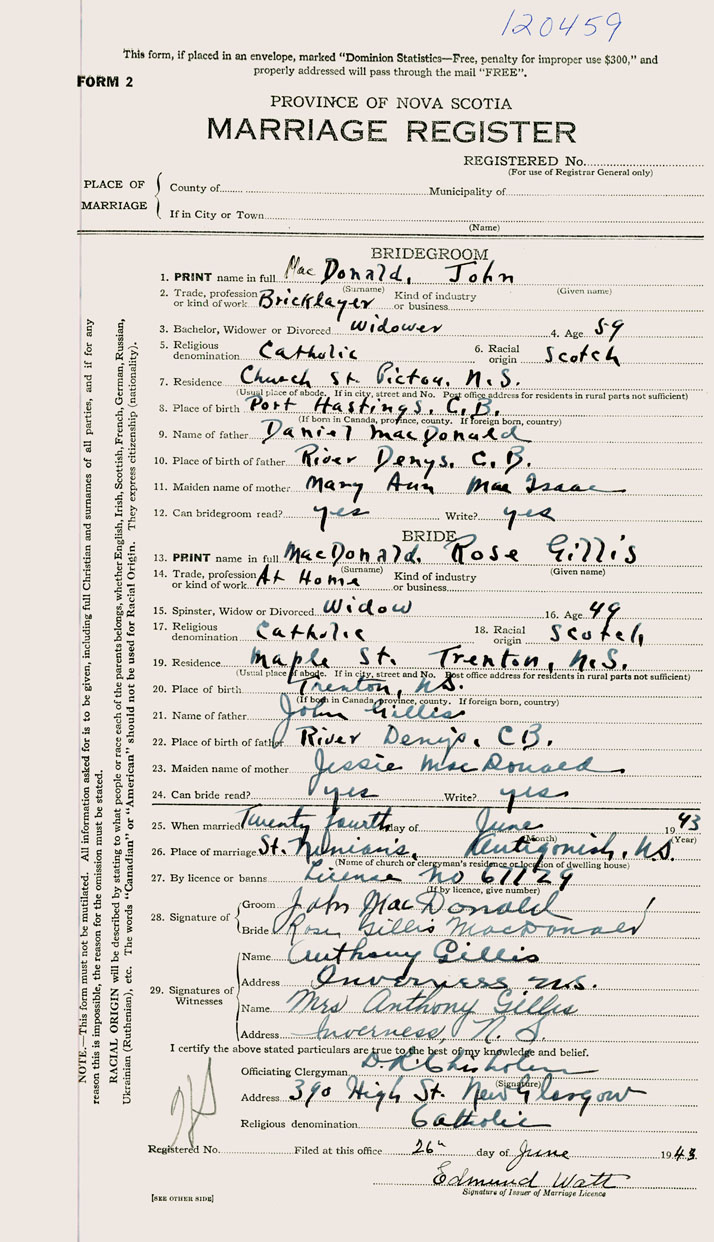 120459
This form, if placed in an envelope, marked "Dominion Statistics—Free, penalty for improper use $300," and
properly addressed will pass through the mail "FREE".
FORM 2
PROVINCE OF NOVA SCOTIA
MARRIAGE REGISTER
REGISTERED No.
(For use of Registrar General only)
PLACE OF MARRIAGE
County of Municipality of
If in City or Town
(Name)
BRIDEGROOM
1. PRINT name in full MacDonald, John
(Surname) (Given name)
2. Trade, profession or kind of work Bricklayer Kind of industry or business
3. Bachelor, Widower or Divorced Widower 4. Age 59
5. Religious denomination Catholic 6. Racial origin Scotch
7. Residence Church St. Pictou, N.S.
(Usual place of abode. If in city, street and No. Post office address for residents in rural parts not sufficient)
8. Place of birth Port Hastings, C.B.
(If born in Canada, province, county. If foreign born, country)
9. Name of father Daniel MacDonald
10. Place of birth of father River Denys, C.B.
11. Maiden name of mother Mary Ann MacIsaac
12. Can bridegroom read? yes Write? yes
BRIDE
13. PRINT name in full MacDonald, Rose Gillis
(Surname) (Given name)
14. Trade, profession or kind of work At Home Kind of industry or business
15. Spinster, Widow or Divorced Widow 16. Age 49
17. Religious denomination Catholic 18. Racial origin Scotch
19. Residence Maple St. Trenton, N.S.
(Usual place of abode. If in city, street and No. Post office address for residents in rural parts not sufficient)
20. Place of birth Trenton, N.S.
(If born in Canada, province, county. If foreign born, country)
21. Name of father John Gillis
22. Place of birth of father River Denys, C.B.
23. Maiden name of mother Jessie MacDonald
24. Can bride read? yes Write? yes
25. When married Twenty fourth day of June 1943
(Month) (Year)
26. Place of marriage St. Ninian's, Antigonish, N.S.
(Name of church or clergyman's residence or location of dwelling house)
27. By licence or banns License No 61129
(If by licence, give number)
28. Signature of
Groom John MacDonald
Bride Rose Gillis MacDonald
29. Signatures of Witnesses
Name Anthony Gillis
Address Inverness N.S.
Name Mrs Anthony Gillis
Address Inverness, N.S.
I certify the above stated particulars are true to the best of my knowledge and belief.
Officiating Clergyman D.R. Chisholm
(Signature)
Address 390 High St. New Glasgow
Religious denomination Catholic
Registered No. Filed at this office 26th day of June 1943
Edmund Watt
Signature of Issuer of Marriage Licence
[SEE OTHER SIDE]
NOTE.—This form must not be mutilated. All information asked for is to be given, including full Christian and surnames of all parties, and if for any
reason this is impossible, the reason for the omission must be stated.
RACIAL ORIGIN will be described by stating to what people or race each of the parents belongs, whether English, Irish, Scottish, French, German, Russian,
Ukrainian (Ruthenian), etc. The words "Canadian" or "American" should not be used for Racial Origin. They express citizenship (nationality).